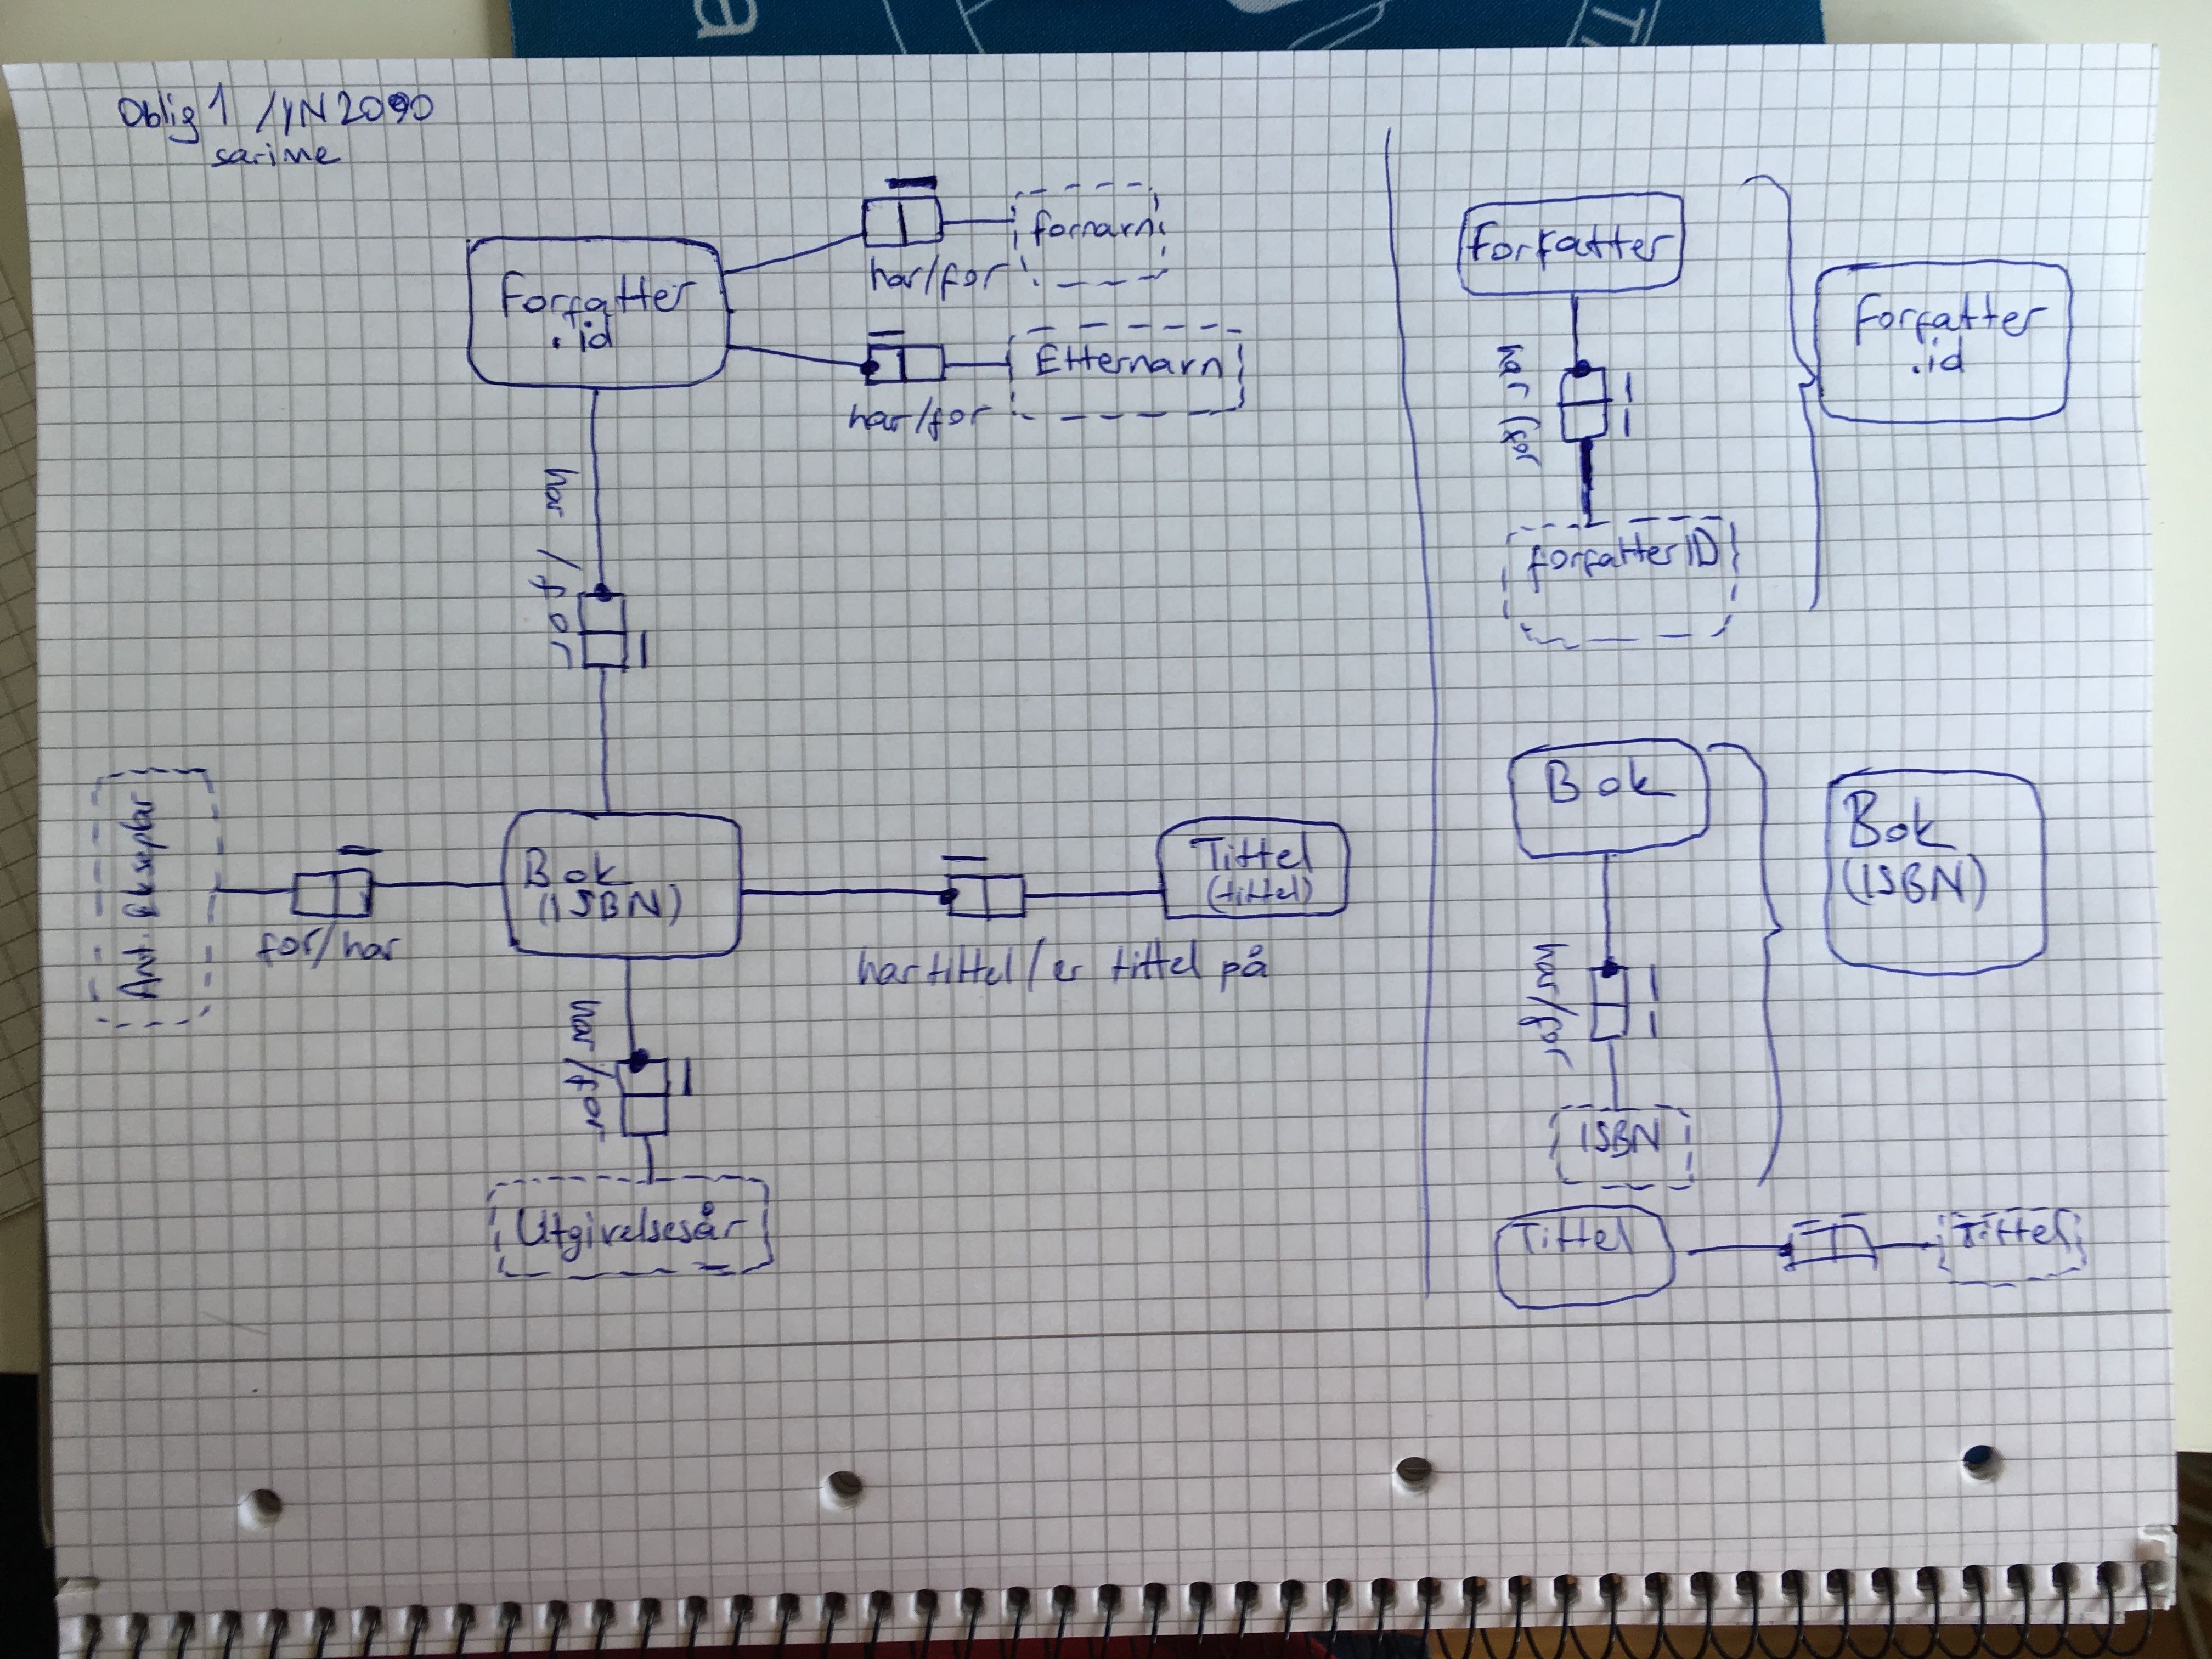 Oblig 1 / IN2090
sarime
fornavn
har/for
Forfatter
.id
Etternavn
har/for
har / for
Ant. Eksemplar
for/har
Bok
(ISBN)
Tittel
(tittel)
har tittel / er tittel på
har/for
Utgivelsesår
Forfatter
har/for
forfatterID
Forfatter
.id
Bok
har/for
ISBN
Bok
(ISBN)
Tittel
Tittel
a